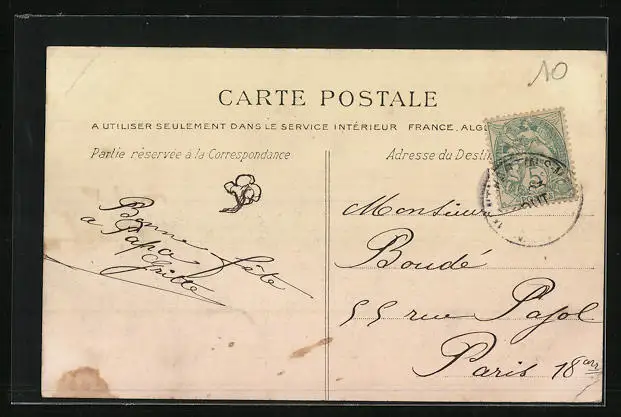 10
CARTE POSTALE
A UTILISER SEULEMENT DANS LE SERVICE INTÉRIEUR FRANCE, ALG
Partie réservée à la Correspondance
Adresse du Desti
Bonne fête
a Papa
Monsieur
Boudé
55 rue Pajol
Paris 18 arr